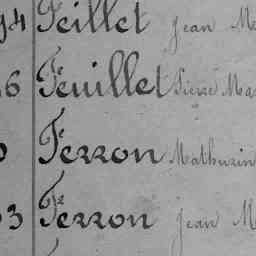 94 Feillet Jean Ma
6 Feuillet Pierre Ma
Ferron Mathurin
3 Ferron Jean M